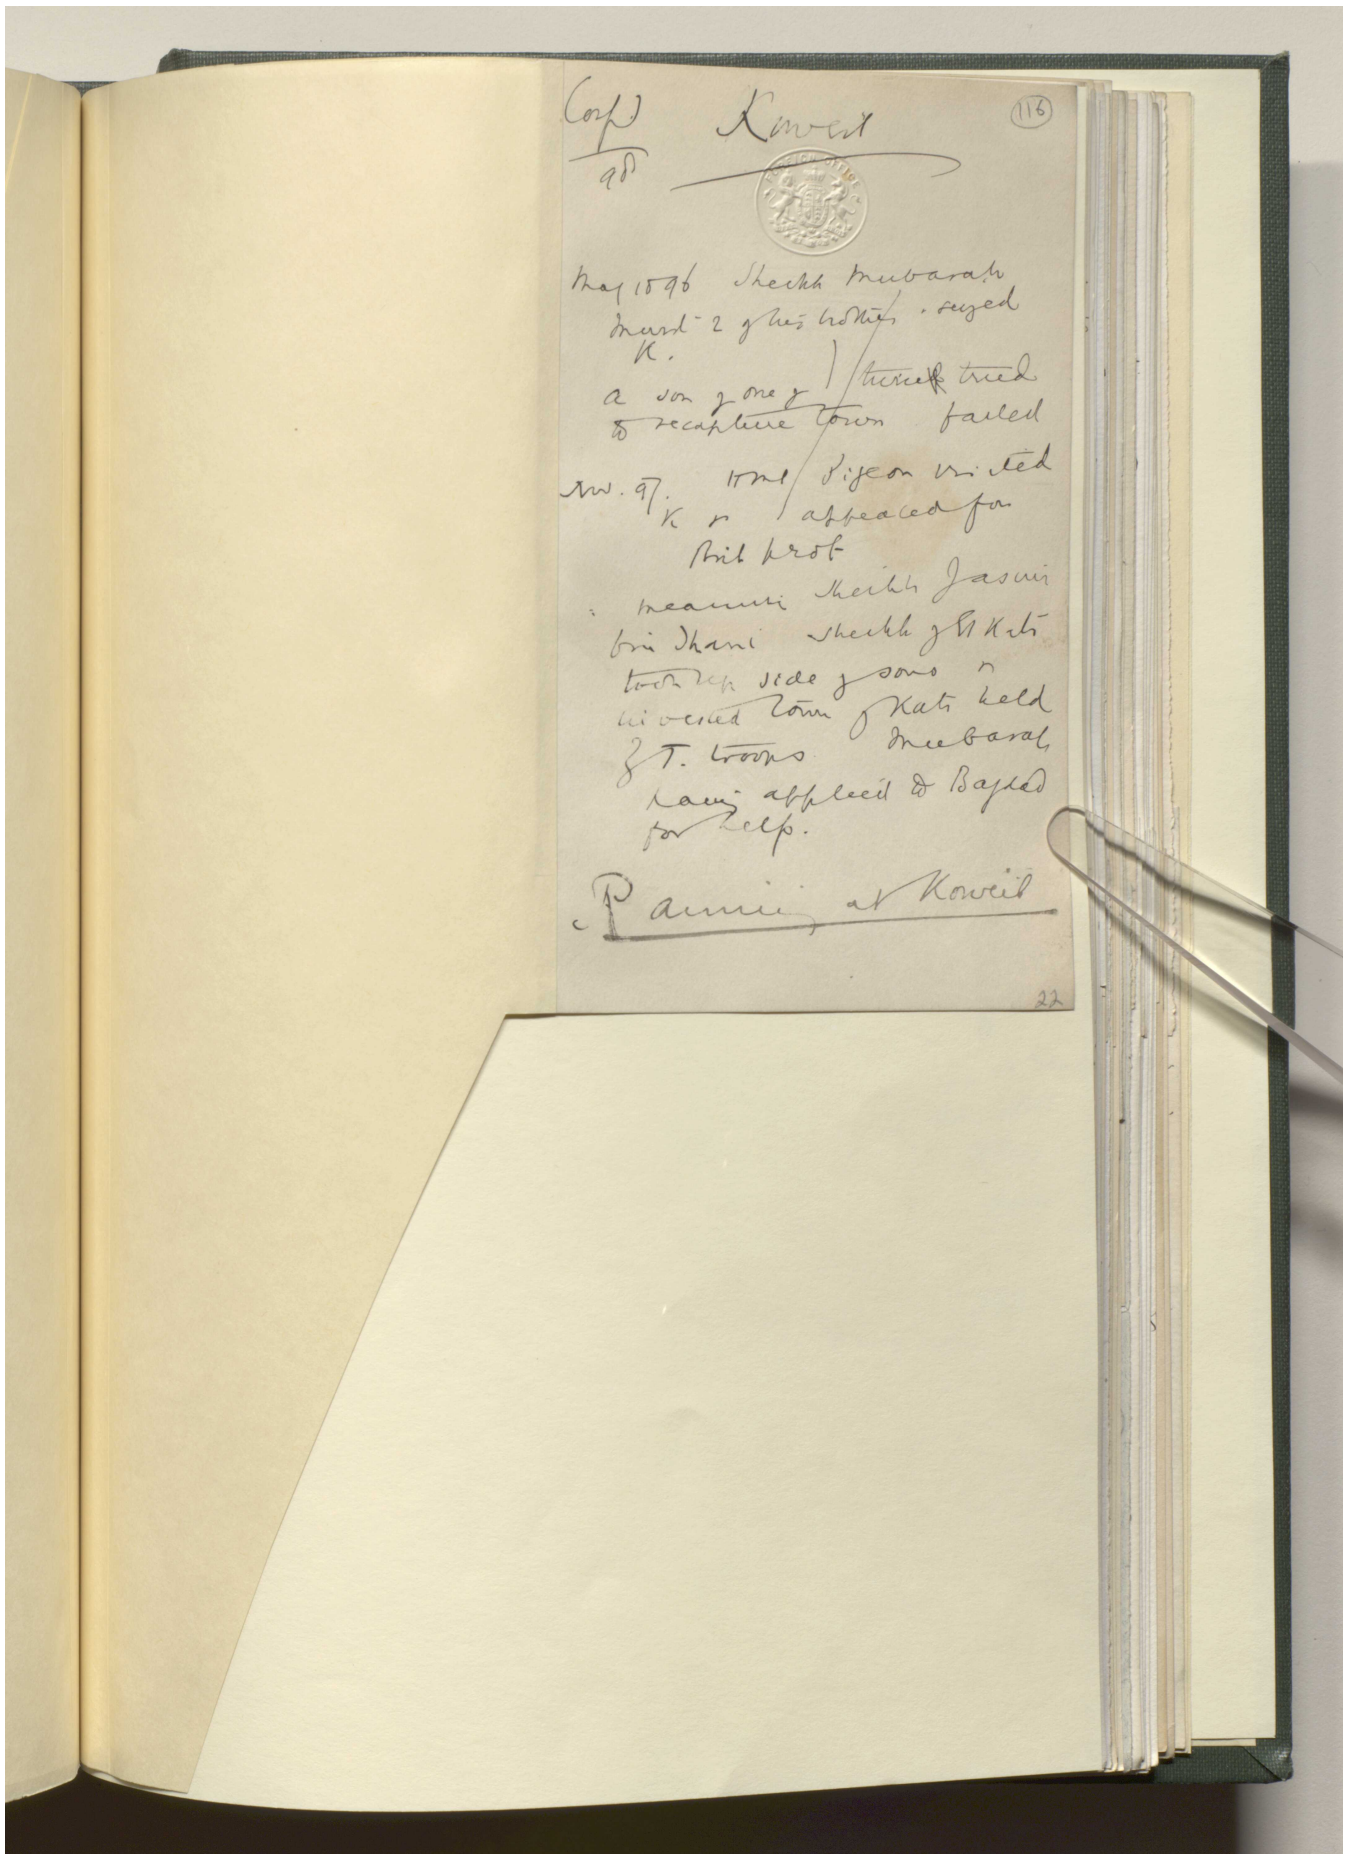 Corf.)
98
Koweit
116
FOREIGN OFFICE
May 1896 Sheikh Mubarak
murd 2 of his brothers . seized
K.
a son of one of these tried
to recapture town failed
Nov. 97. HMS Pigeon visited
K appealed for
Brit prot
Sheikh Jasim
bin Thani Sheikh of El Katr
took up side of sons
invested town of Katr held
by T. troops Mubarak
having applied to Bagdad
for help.
P at Koweit
22